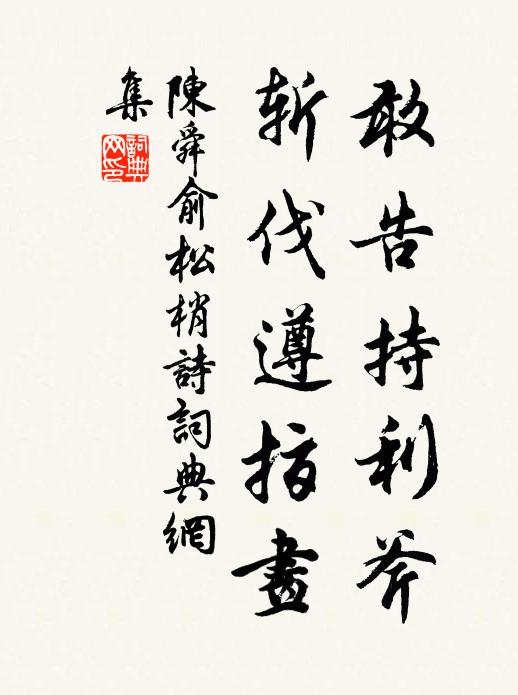 敢告持利斧
斬伐遵指畫
陳舜俞松梢詩詞典網
集
詞典網印